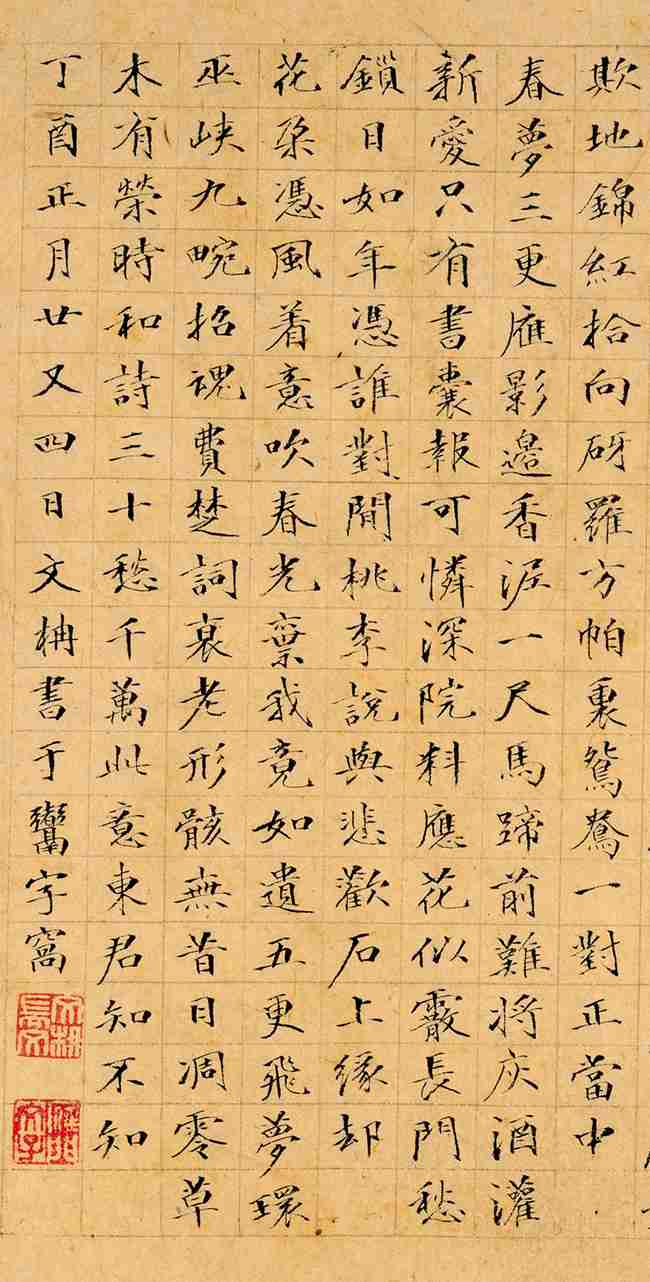 欺地錦紅拾向砑羅方帕裏鴛鴦一對正當中
春夢三更雁影邊香泥一尺馬蹄前難將灰酒灌
新愛只有書囊報可憐深院料應花似霰長門愁
鎖日如年憑誰對閒桃李說與悲歡石上緣却
花朶憑風着意吹春光棄我竟如遺五更飛夢環
巫峽九畹招魂費楚詞衰老形骸無昔日凋零草
木有榮時和詩三十愁千萬此意東君知不知
丁酉正月廿又四日文枏書于鬻字窩